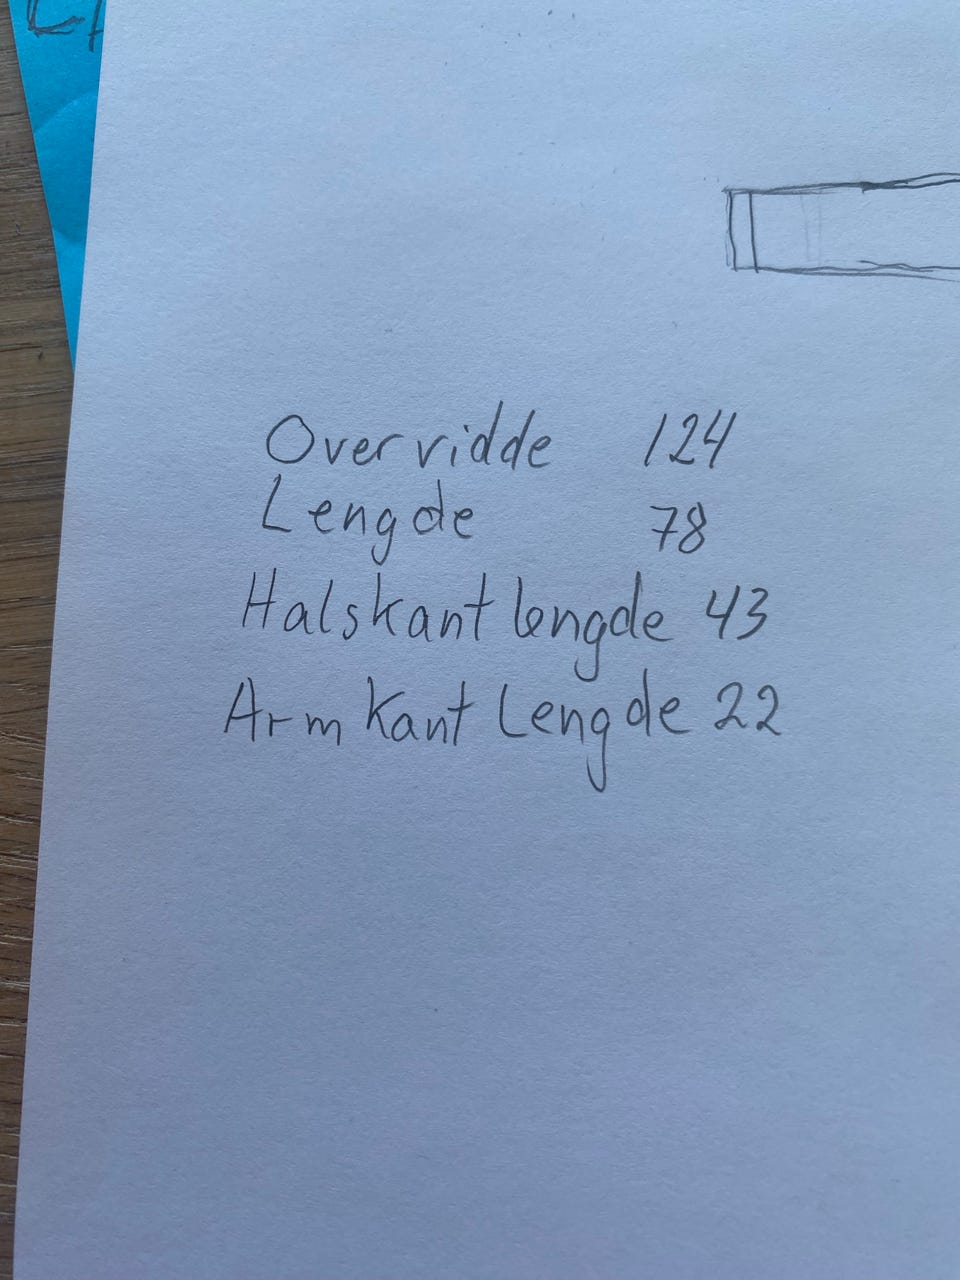 Overvidde 124
Lengde 78
Halskant lengde 43
Armkant Lengde 22